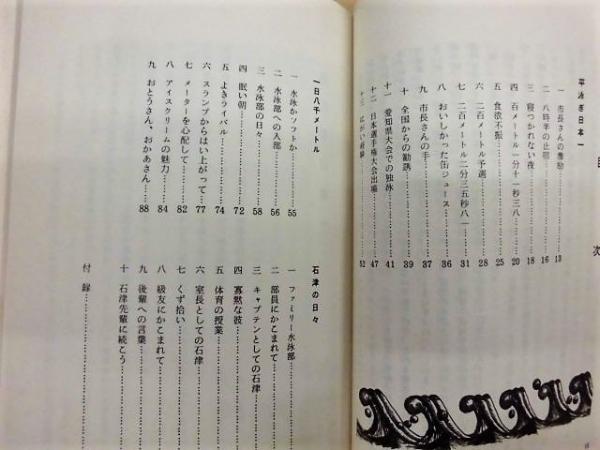 目次
平泳ぎ日本一
一 市長さんの激励 13
二 八時半の止宿 16
三 寝つかれない夜 18
四 百メートル一分十一秒三八 20
五 食欲不振 25
六 二百メートル予選 28
七 二百メートル二分三五秒八一 31
八 おいしかった缶ジュース 36
九 市長さんの手 37
十 全国からの勧誘 39
十一 愛知県大会での独泳 41
十二 日本選手権大会出場 47
十三 にがい経験 52
一日八千メートル
一 水泳かソフトか 55
二 水泳部への入部 56
三 水泳部の日々 58
四 眠い朝 72
五 よきライバル 74
六 スランプからはい上がって 77
七 メーターを心配して 82
八 アイスクリームの魅力 84
九 おとうさん、おかあさん 88
石津の日々
一 ファミリー水泳部
二 部員にかこまれて
三 キャプテンとしての石津
四 寡黙な彼
五 体育の授業
六 室長としての石津
七 くず拾い
八 級友にかこまれて
九 後輩への言葉
十 石津先輩に続こう
付録